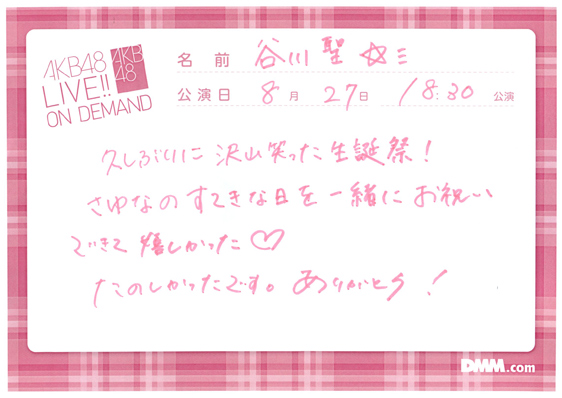 AKB48
LIVE!!
ON DEMAND
AKB
48
名前 谷川聖 ☆ミ
公演日 8月 27日 18:30 公演
久しぶりに 沢山笑った 生誕祭！
さゆなの すてきな日を 一緒に お祝い
できて 嬉しかった♡
たのしかったです。ありがとう！
DMM.com